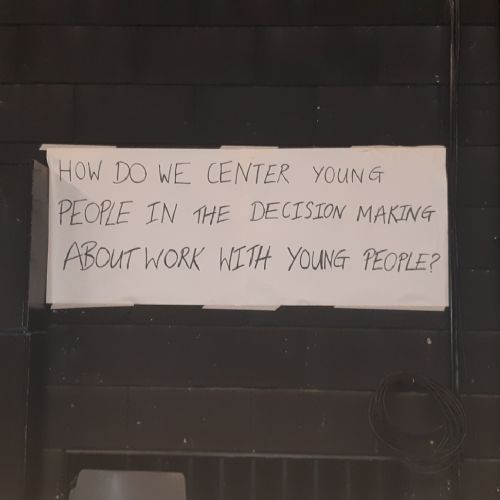 HOW DO WE CENTER YOUNG
PEOPLE IN THE DECISION MAKING
ABOUT WORK WITH YOUNG PEOPLE?